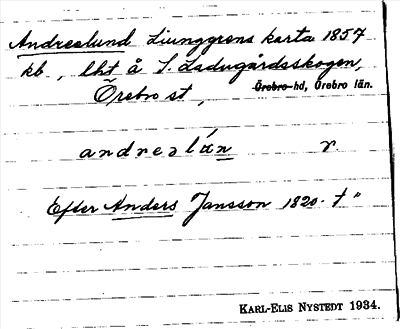 Andreelund Liunggrens karta 1857
kb., lht å S. Ladugårdsskogen,
Örebro st, Örebro hd, Örebro län.
andreəlún r.
Efter Anders Jansson 1820. † "
KARL-ELIS NYSTEDT 1934.